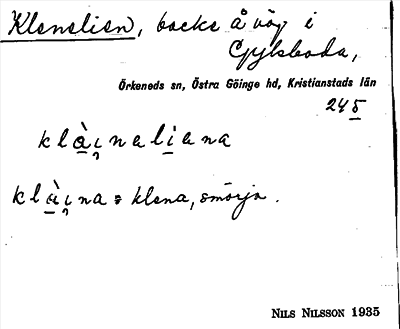 Klenalien, backe å väg i
Gylsboda,
Örkeneds sn, Östra Göinge hd, Kristianstads län
245
klài̯naliana
klài̯na = klena, smörja.
NILS NILSSON 1935